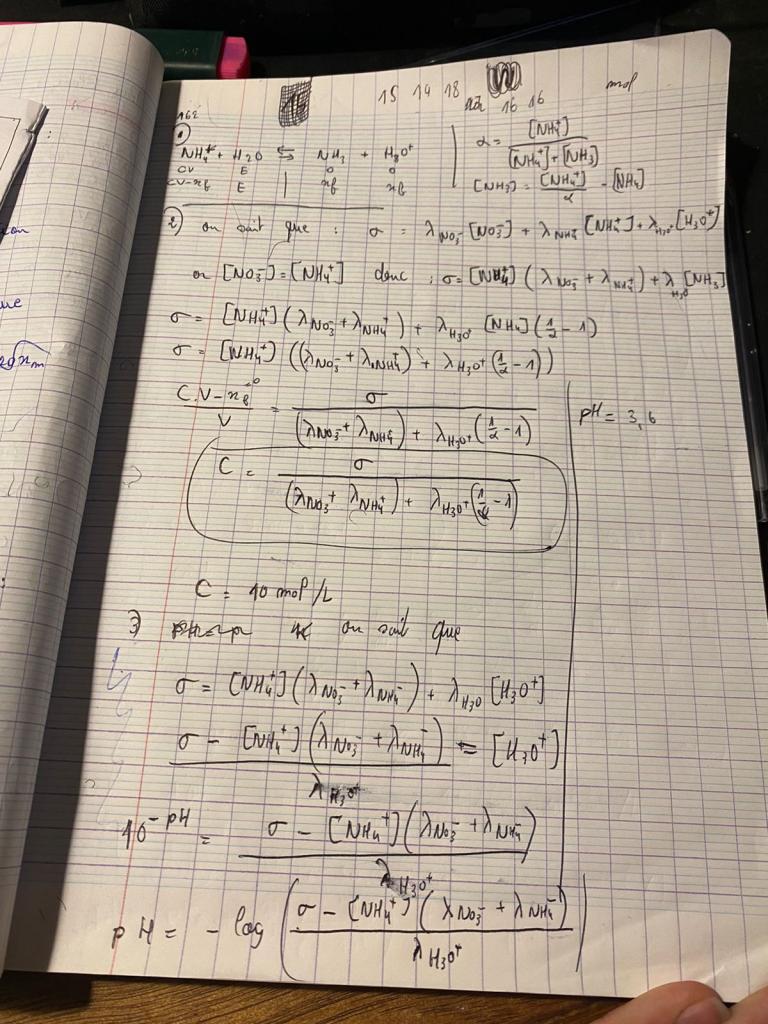 15 14 18
16 16
mol
162
1)
NH₄⁺ + H₂O ⇌ NH₃ + H₃O⁺
CV E 0 0
CV-xf E xf xf
α = [NH₄⁺] / ([NH₄⁺] + [NH₃])
[NH₃] = [NH₄⁺]/α - [NH₄]
2) on sait que : σ = λNO₃⁻ [NO₃⁻] + λNH₄⁺ [NH₄⁺] + λH₃O⁺ [H₃O⁺]
or [NO₃⁻] = [NH₄⁺] donc : σ = [NH₄⁺] (λNO₃⁻ + λNH₄⁺) + λH₃O [NH₃]
σ = [NH₄⁺] (λNO₃⁻ + λNH₄⁺) + λH₃O⁺ [NH₄] (1/α - 1)
σ = [NH₄⁺] ((λNO₃⁻ + λNH₄⁺) + λH₃O⁺ (1/α - 1))
(C.V - xf)/V = σ / ((λNO₃⁺ λNH₄⁺) + λH₃O⁺ (1/α - 1))
pH = 3,6
C = σ / ((λNO₃⁺ λNH₄⁺) + λH₃O⁺ (1/α - 1))
C = 10 mol/L
3) on sait que
σ = [NH₄⁺] (λNO₃⁻ + λNH₄⁻) + λH₃O [H₃O⁺]
(σ - [NH₄⁺] (λNO₃⁻ + λNH₄⁻)) / λH₃O⁺ = [H₃O⁺]
10^-pH = (σ - [NH₄⁺] (λNO₃⁻ + λNH₄⁻)) / λH₃O⁺
pH = - log ((σ - [NH₄⁺] (λNO₃⁻ + λNH₄⁻)) / λH₃O⁺)